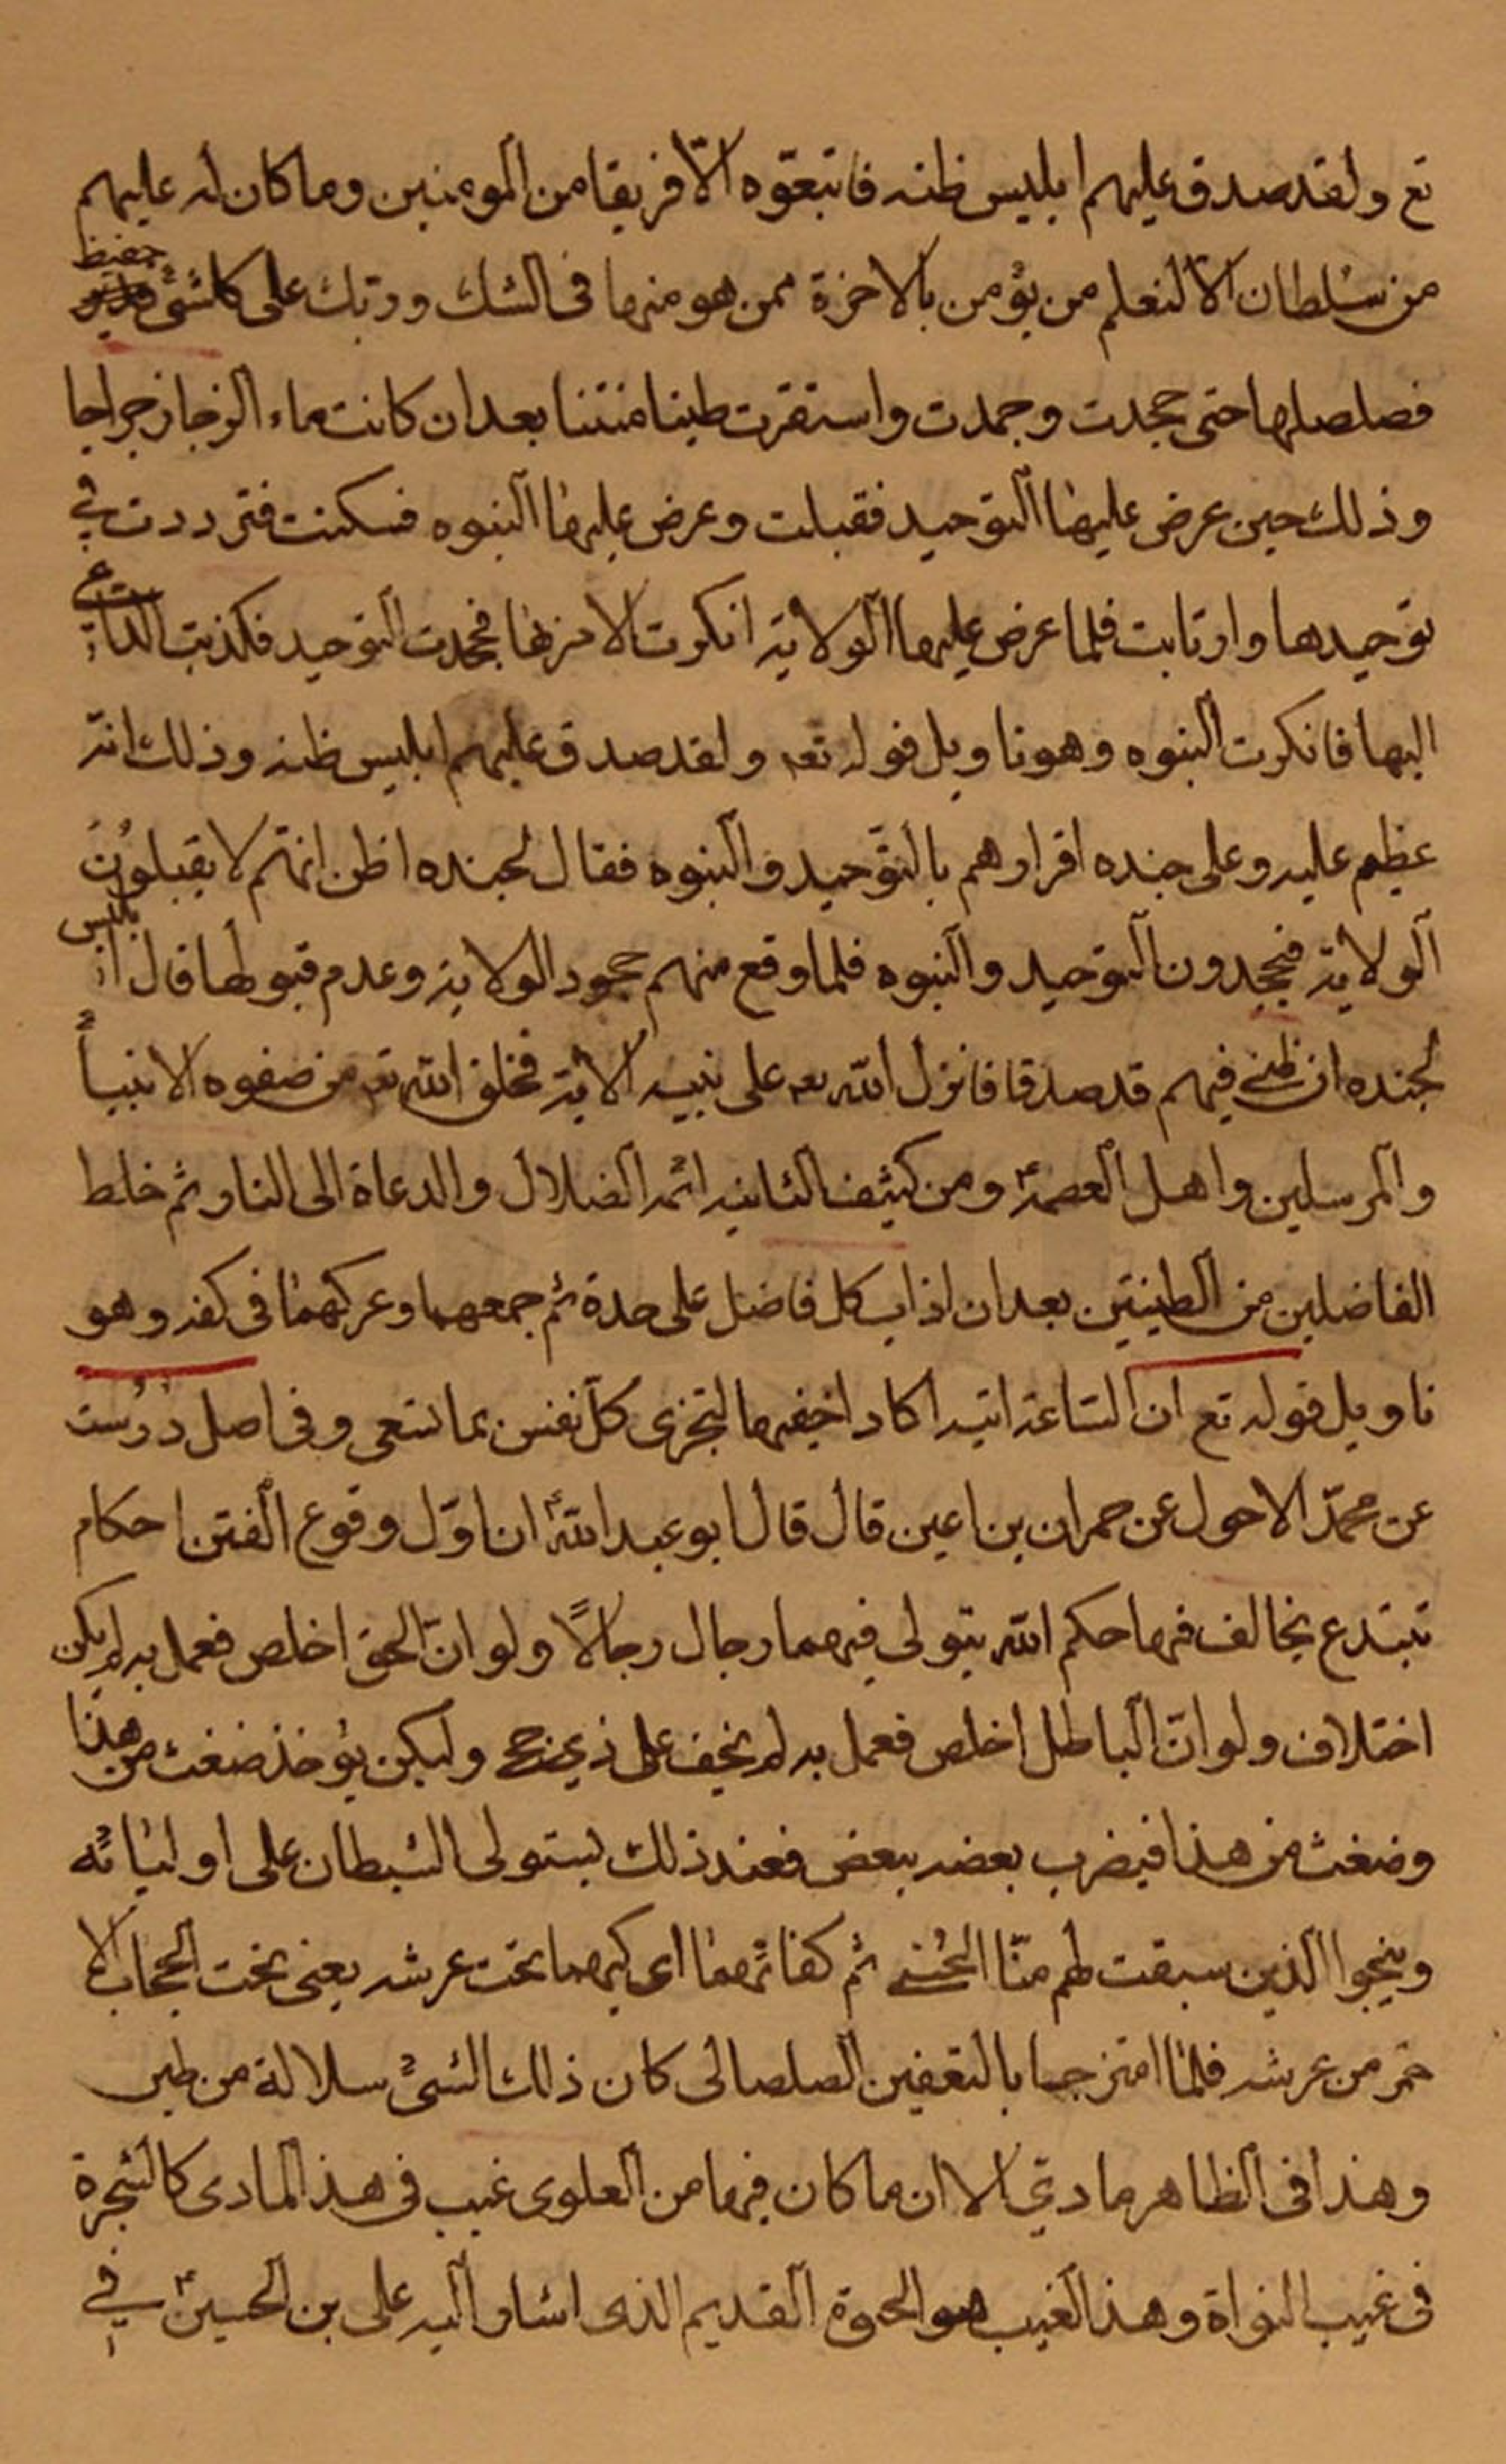 تع ولقد صدق عليهم ابليس ظنه فاتبعوه الّا فريقا من المومنين وما كان له عليهم
من سلطان الا لنعلم من يؤمن بالاخرة ممن هو منها فى الشك وربك على كلشئ حفيظ
فصلصلها حتى جحدت وجمدت واستقرت طينا منتنا بعد ان كانت ماء
وذلك حين عرض عليها التوحيد فقبلت وعرض عليها النبوه فسكنت فترددت في
توحيدها وارتابت فلما عرض عليها الولاية انكرت فجحدت التوحيد فكذبت الداعي
اليها فانكرت النبوه وهو تاويل قوله تعه ولقد صدق عليهم ابليس ظنه وذلك انه
عظم عليه وعلى جنده اقرارهم بالتوحيد والنبوه فقال لجنده اظن انهم لا يقبلون
الولاية فيجحدون التوحيد والنبوه فلما وقع منهم جحود الولاية وعدم قبولها قال ابليس
لجنده ان ظنى فيهم قد صدقا فانزل الله تعه على نبيه الاية فخلق الله تعه من صفوه الانبياء
والمرسلين واهل العصمةع ومن كثيف الثانيه ائمه الضلال والدعاة الى النار ثم خلط
الفاضلين من الطينتين بعد ان اذاب كل فاضل على حدة ثم جمعهما وعركهما فى كفه وهو
تاويل قوله تع ان الساعة اتيه اكاد اخفيها لتجزى كل نفس بما تسعى وفى اصل درست
عن محمّد الاحول عن حمران بن اعين قال قال ابو عبد اللهع ان اوّل وقوع الفتن احكام
تبتدع يخالف فيها حكم الله يتولى فيهما رجال رجالًا ولو انّ الحق اخلص فعمل به لم يكن
اختلاف ولو انّ الباطل اخلص فعمل به لم يخف على ذي حجى وليكن يؤخذ ضغث من هذا
وضغث من هذا فيضرب بعضه ببعض فعند ذلك يستولى الشيطان على اوليائه
وينجوا الذين سبقت لهم منّا الحسنى ثم كفاهما اى كبهما تحت عرشه يعنى تحت الحجاب الا
حمر من عرشه فلما امتزجا بالتعفين الصلصالى كان ذلك الشىء سلالة من طين
وهذا فى الظاهر مادي الا ان ما كان فيها من العلوى غيب فى هذ المادى كالشجرة
فى غيب النواة وهذ الغيب هو القديم الذى اشار اليه على بن الحسينع في